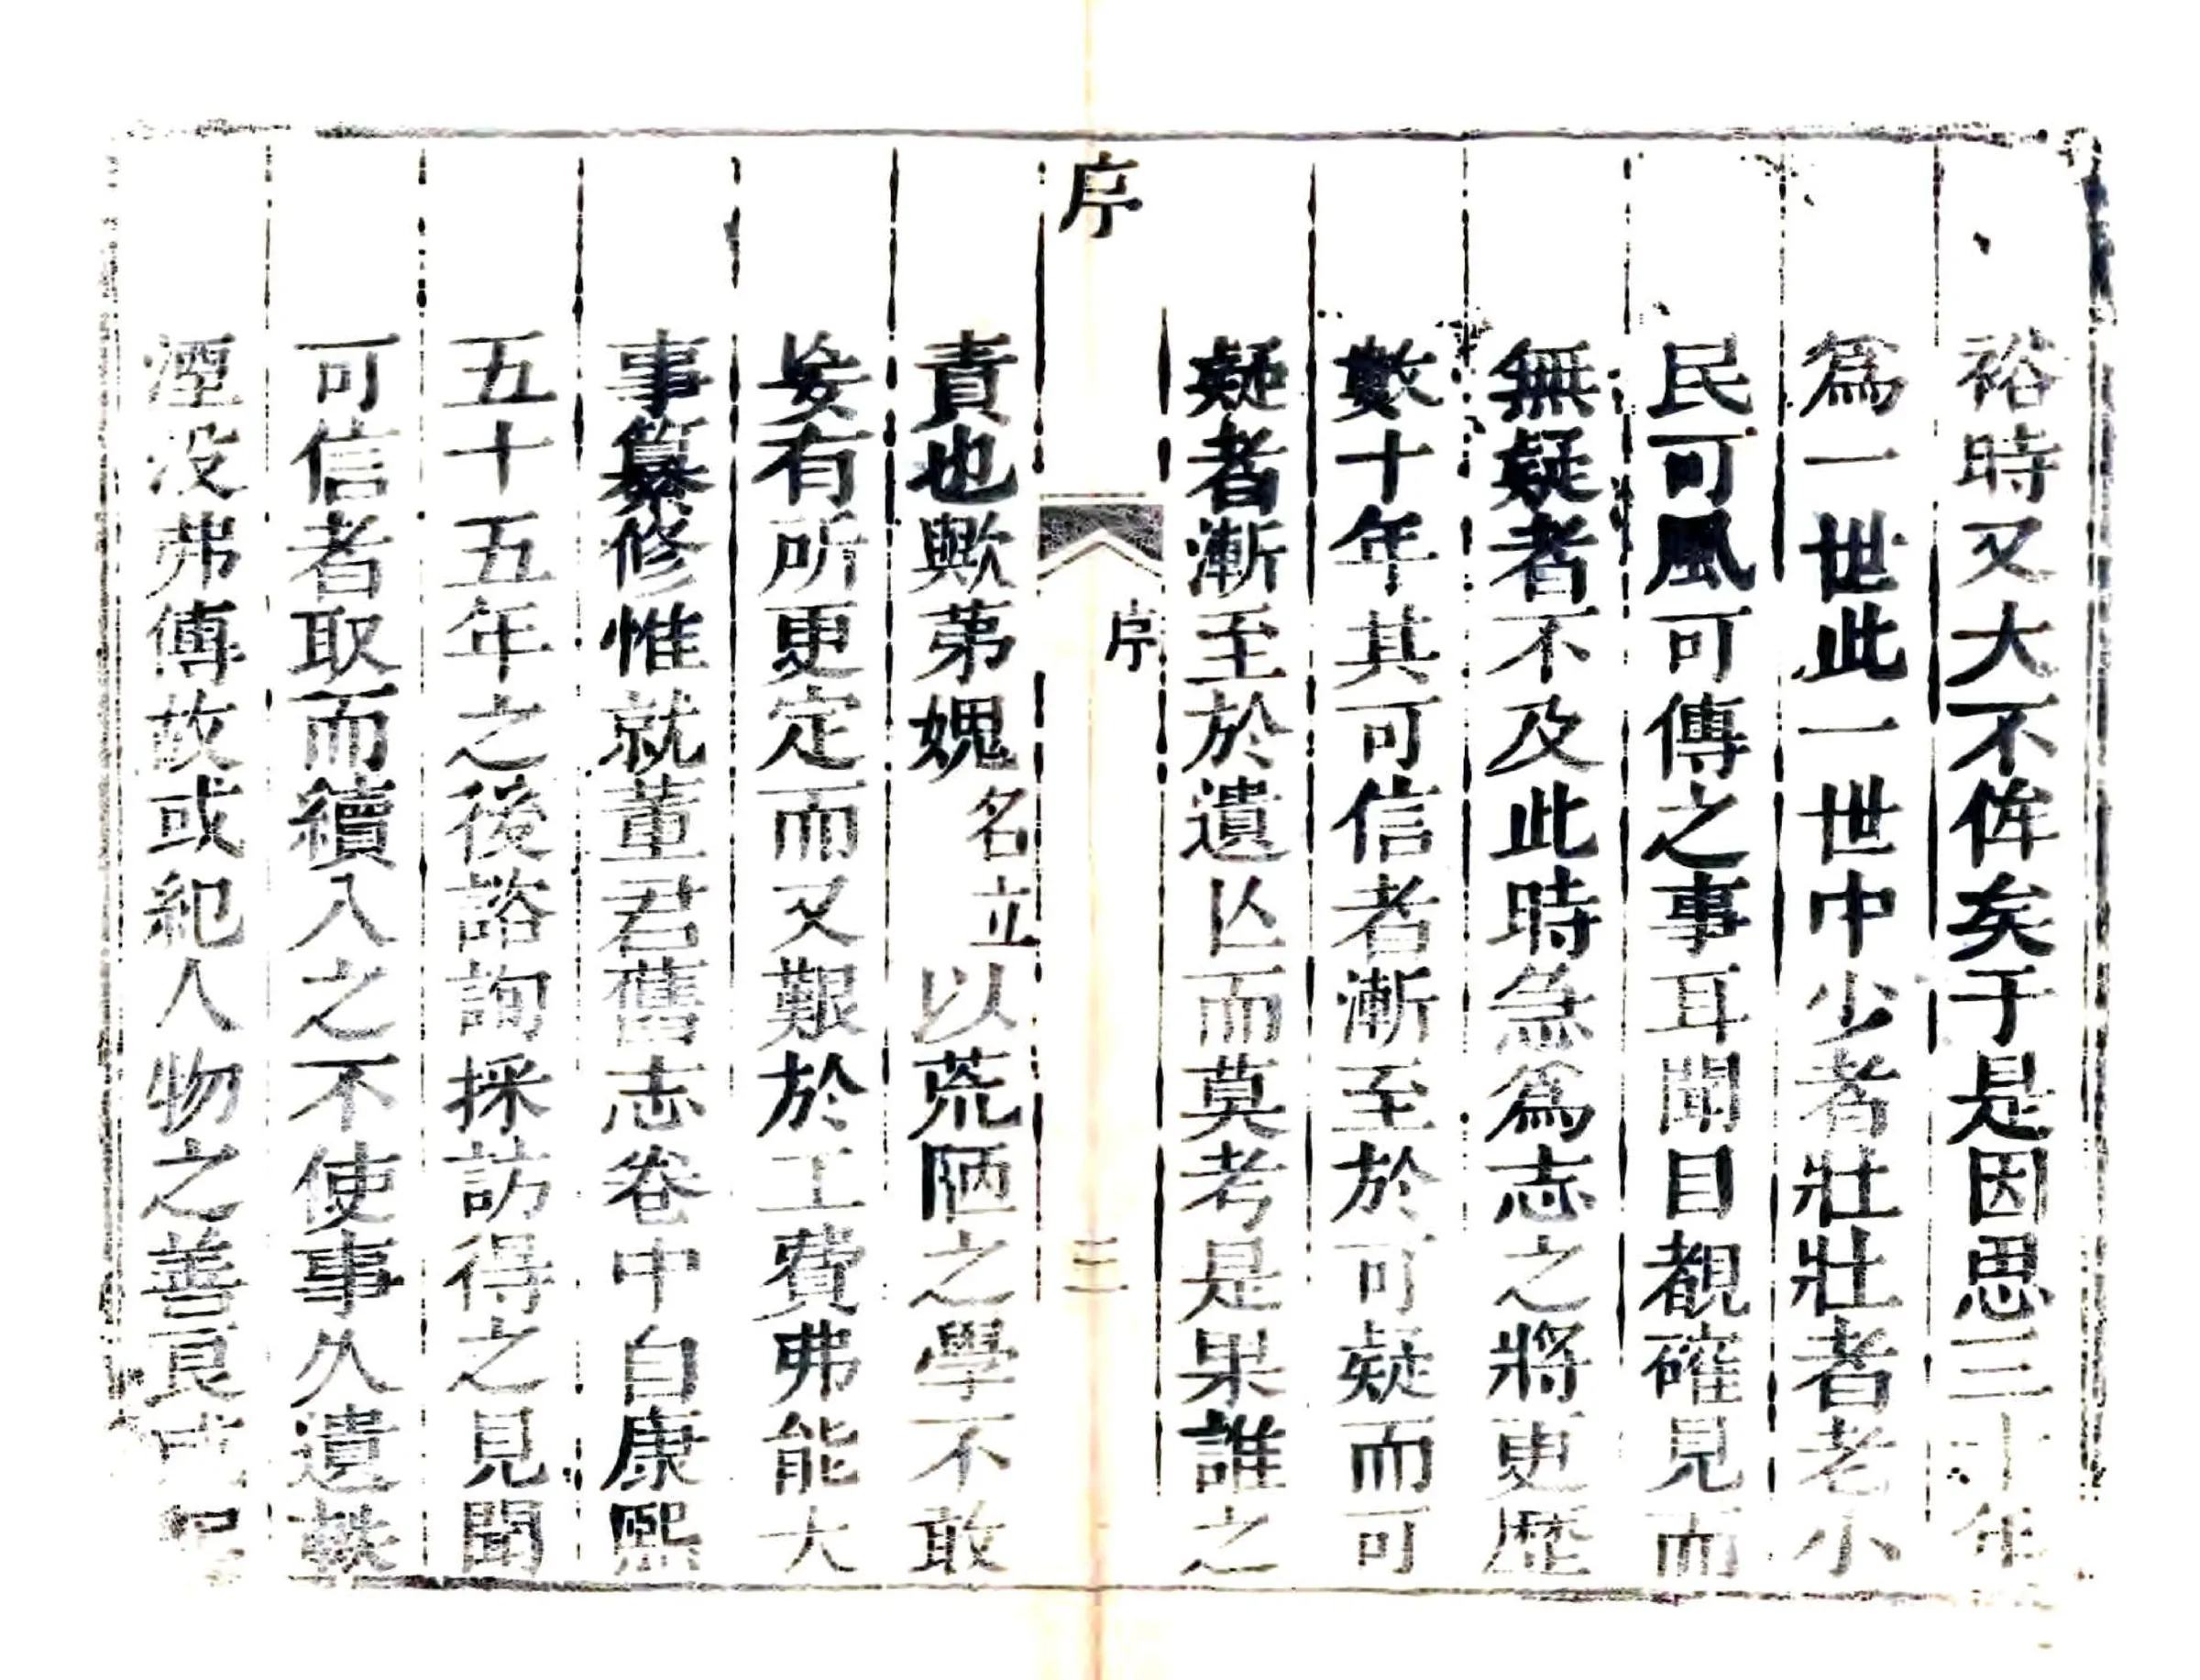 裕時又大不侔矣于是因思三十年
爲一世此一世中少者壯壯者老小
民可風可傳之事耳聞目覩確見而
無疑者不及此時急爲志之將更歷
數十年其可信者漸至於可疑而可
疑者漸至於遺亾而莫考是果誰之
序
序
三
責也歟苐媿名立以荒陋之學不敢
妄有所更定而又艱於工費弗能大
事纂修惟就董君舊志卷中自康熙
五十五年之後諮詢採訪得之見聞
可信者取而續入之不使事久遺軼
湮没弗傳故或紀人物之善良或